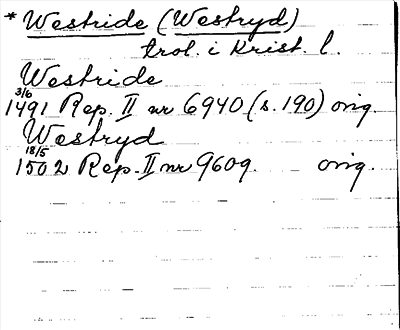 * Westride (Westryd)
trol. i Krist. l.
Westride
3/6
1491 Rep. II nr 6940 (s. 190) orig.
Westryd
18/5
1502 Rep. II nr 9609. orig.